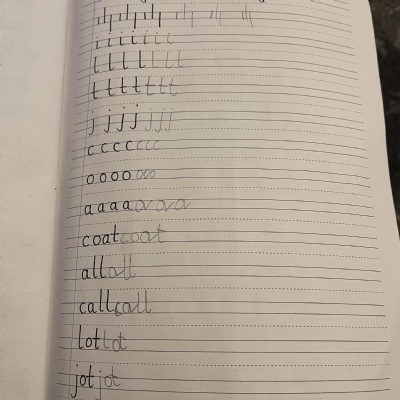 i i i i i i i
l l l l l l l
t t t t t t t
j j j j j j j
c c c c c c c
o o o o o o o
a a a a a a a
coat coat
all all
call call
lot lot
jot jot